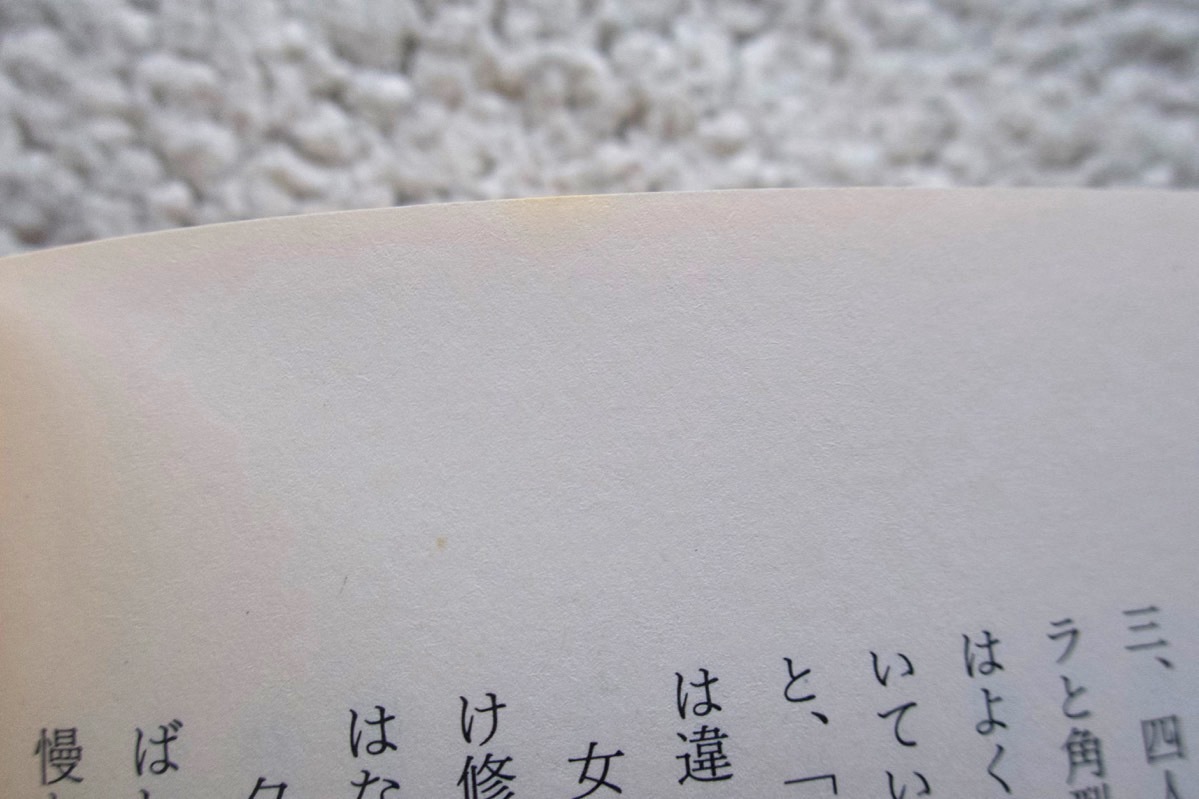 三、四人
ラと角
はよく
いてい
と、「
は違
女
け修
はな
ば
慢